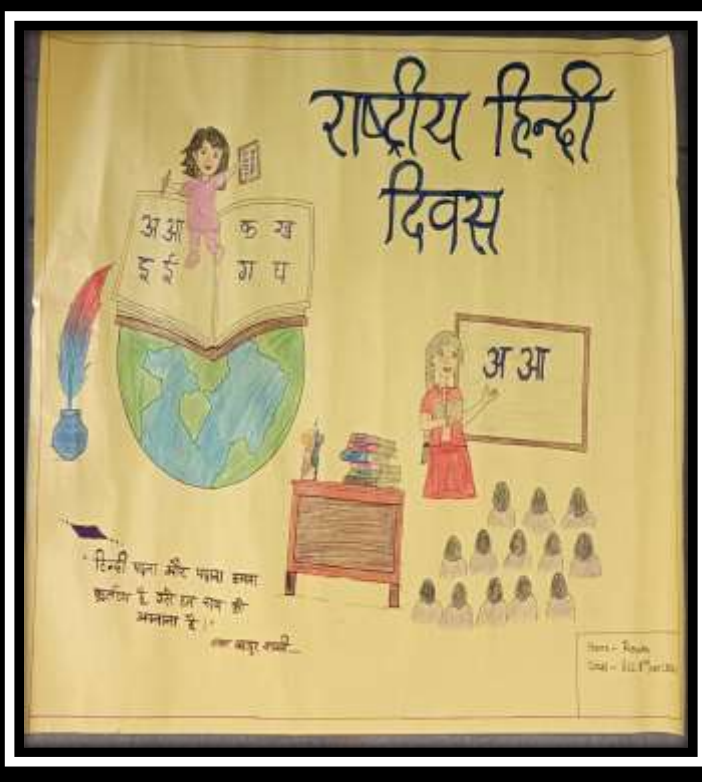 राष्ट्रीय हिन्दी
दिवस
अ आ क ख
इ ई ग घ
अ आ
"हिन्दी पढ़ना और पढ़ाना हमारा
कर्तव्य है उसे हम सब को
अपनाना है।"
लाल बहादुर शास्त्री
Name -
Class -